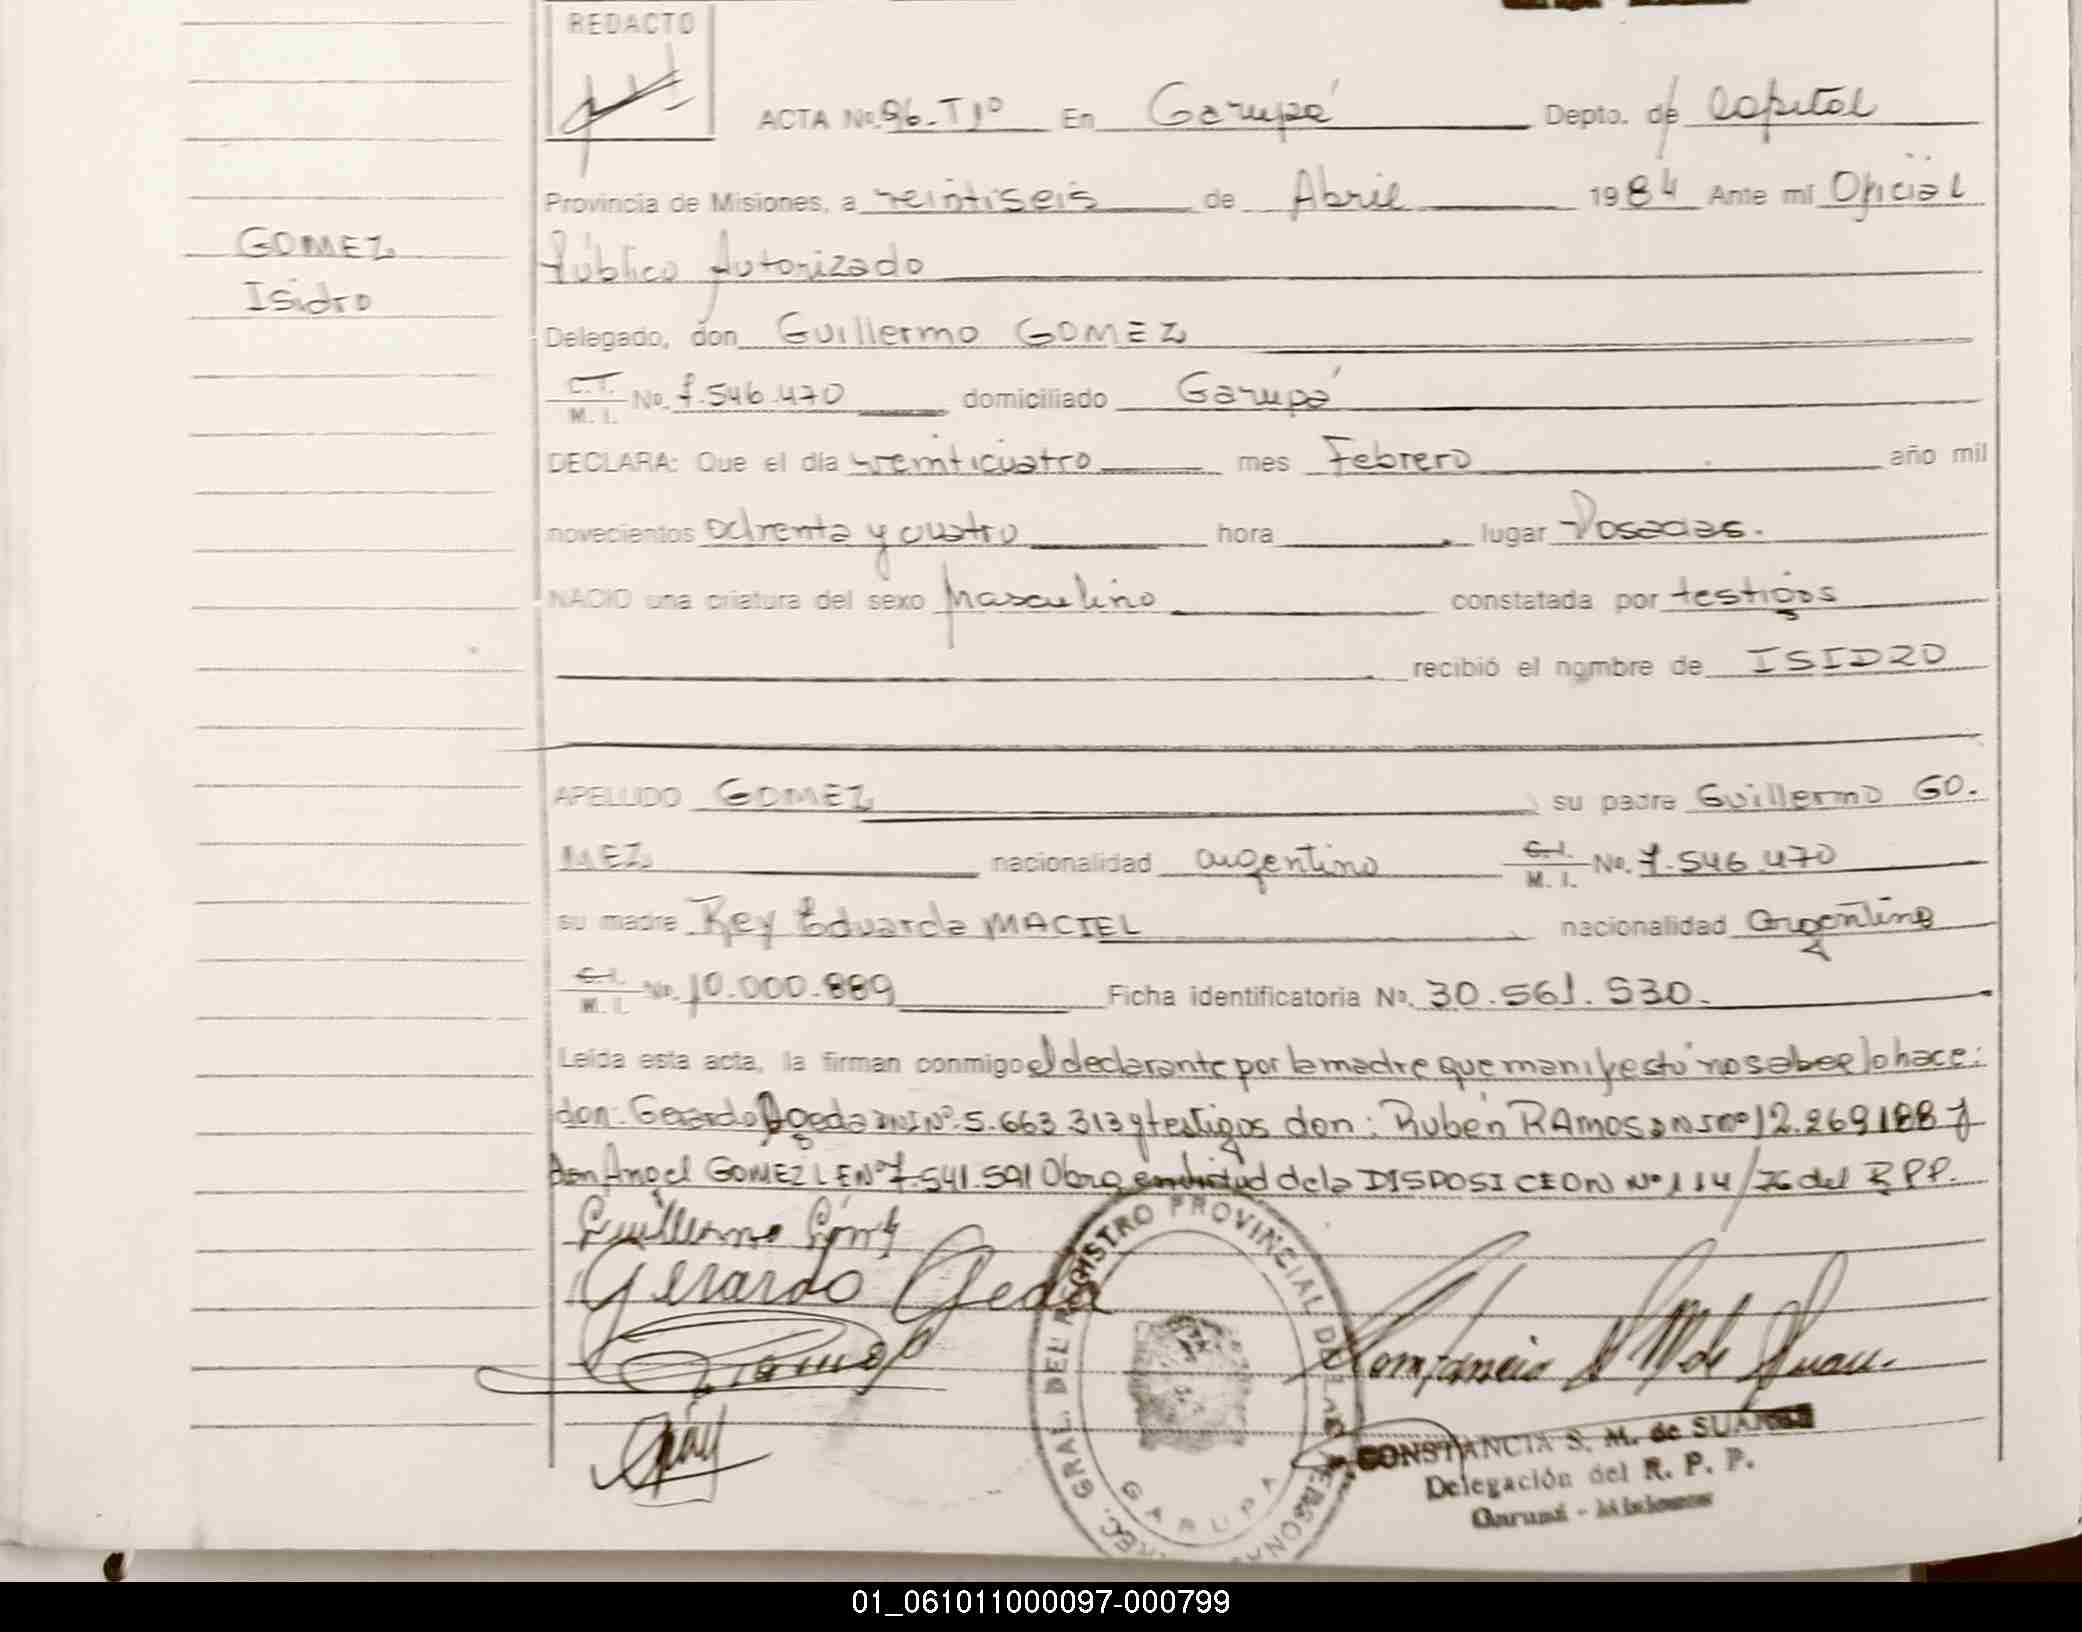 REDACTO
ACTA No. 96. Tº 1º En Garupá Depto. de Capital
Provincia de Misiones, a veintiseis de Abril 1984 Ante mí Oficial
Público Autorizado
GOMEZ
Isidro
Delegado, don Guillermo GOMEZ
C.I.
M. I. No. 7.546.470 domiciliado Garupá
DECLARA: Que el día veinticuatro mes Febrero año mil
novecientos ochenta y cuatro hora lugar Posadas.
NACIO una criatura del sexo Masculino constatada por testigos
recibió el nombre de ISIDRO
APELLIDO GOMEZ su padre Guillermo GO.
MEZ nacionalidad argentino C.I.
M. I. No. 7.546.470
su madre Rey Eduarda MACIEL nacionalidad argentina
C.I.
M. I. No. 10.000.889 Ficha identificatoria No. 30.561.530.
Leída esta acta, la firman conmigo el declarante por la madre que manifestó no saber lo hace:
don: Gerardo Ogeda DNI Nº. 5.663 313 y testigos don: Rubén RAmos DNI nº 12.269188 y
don Angel GOMEZ LE Nº 7.541.591 Obra en virtud de la DISPOSICION Nº 114/76 del R P P.
Guillermo Gómez
Gerardo Ogeda
Ramos
GRAL. DEL REGISTRO PROVINCIAL DE LAS PERSONAS
GARUPA
CONSTANCIA S. M. de SUAREZ
Delegación del R. P. P.
Garupá - Misiones
01_061011000097-000799